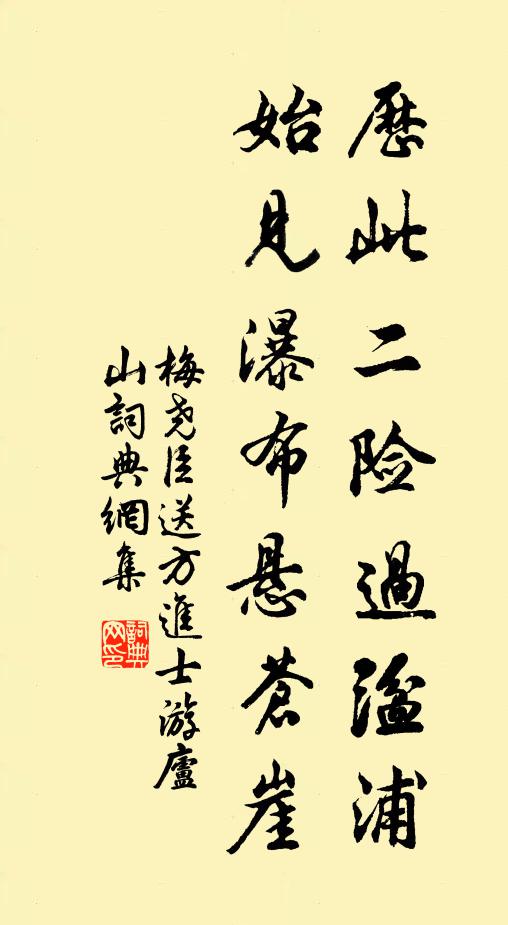 歷此二险過湓浦
始見瀑布悬蒼崖
梅尧臣送方進士游廬
山詞典網集
詞典
网印